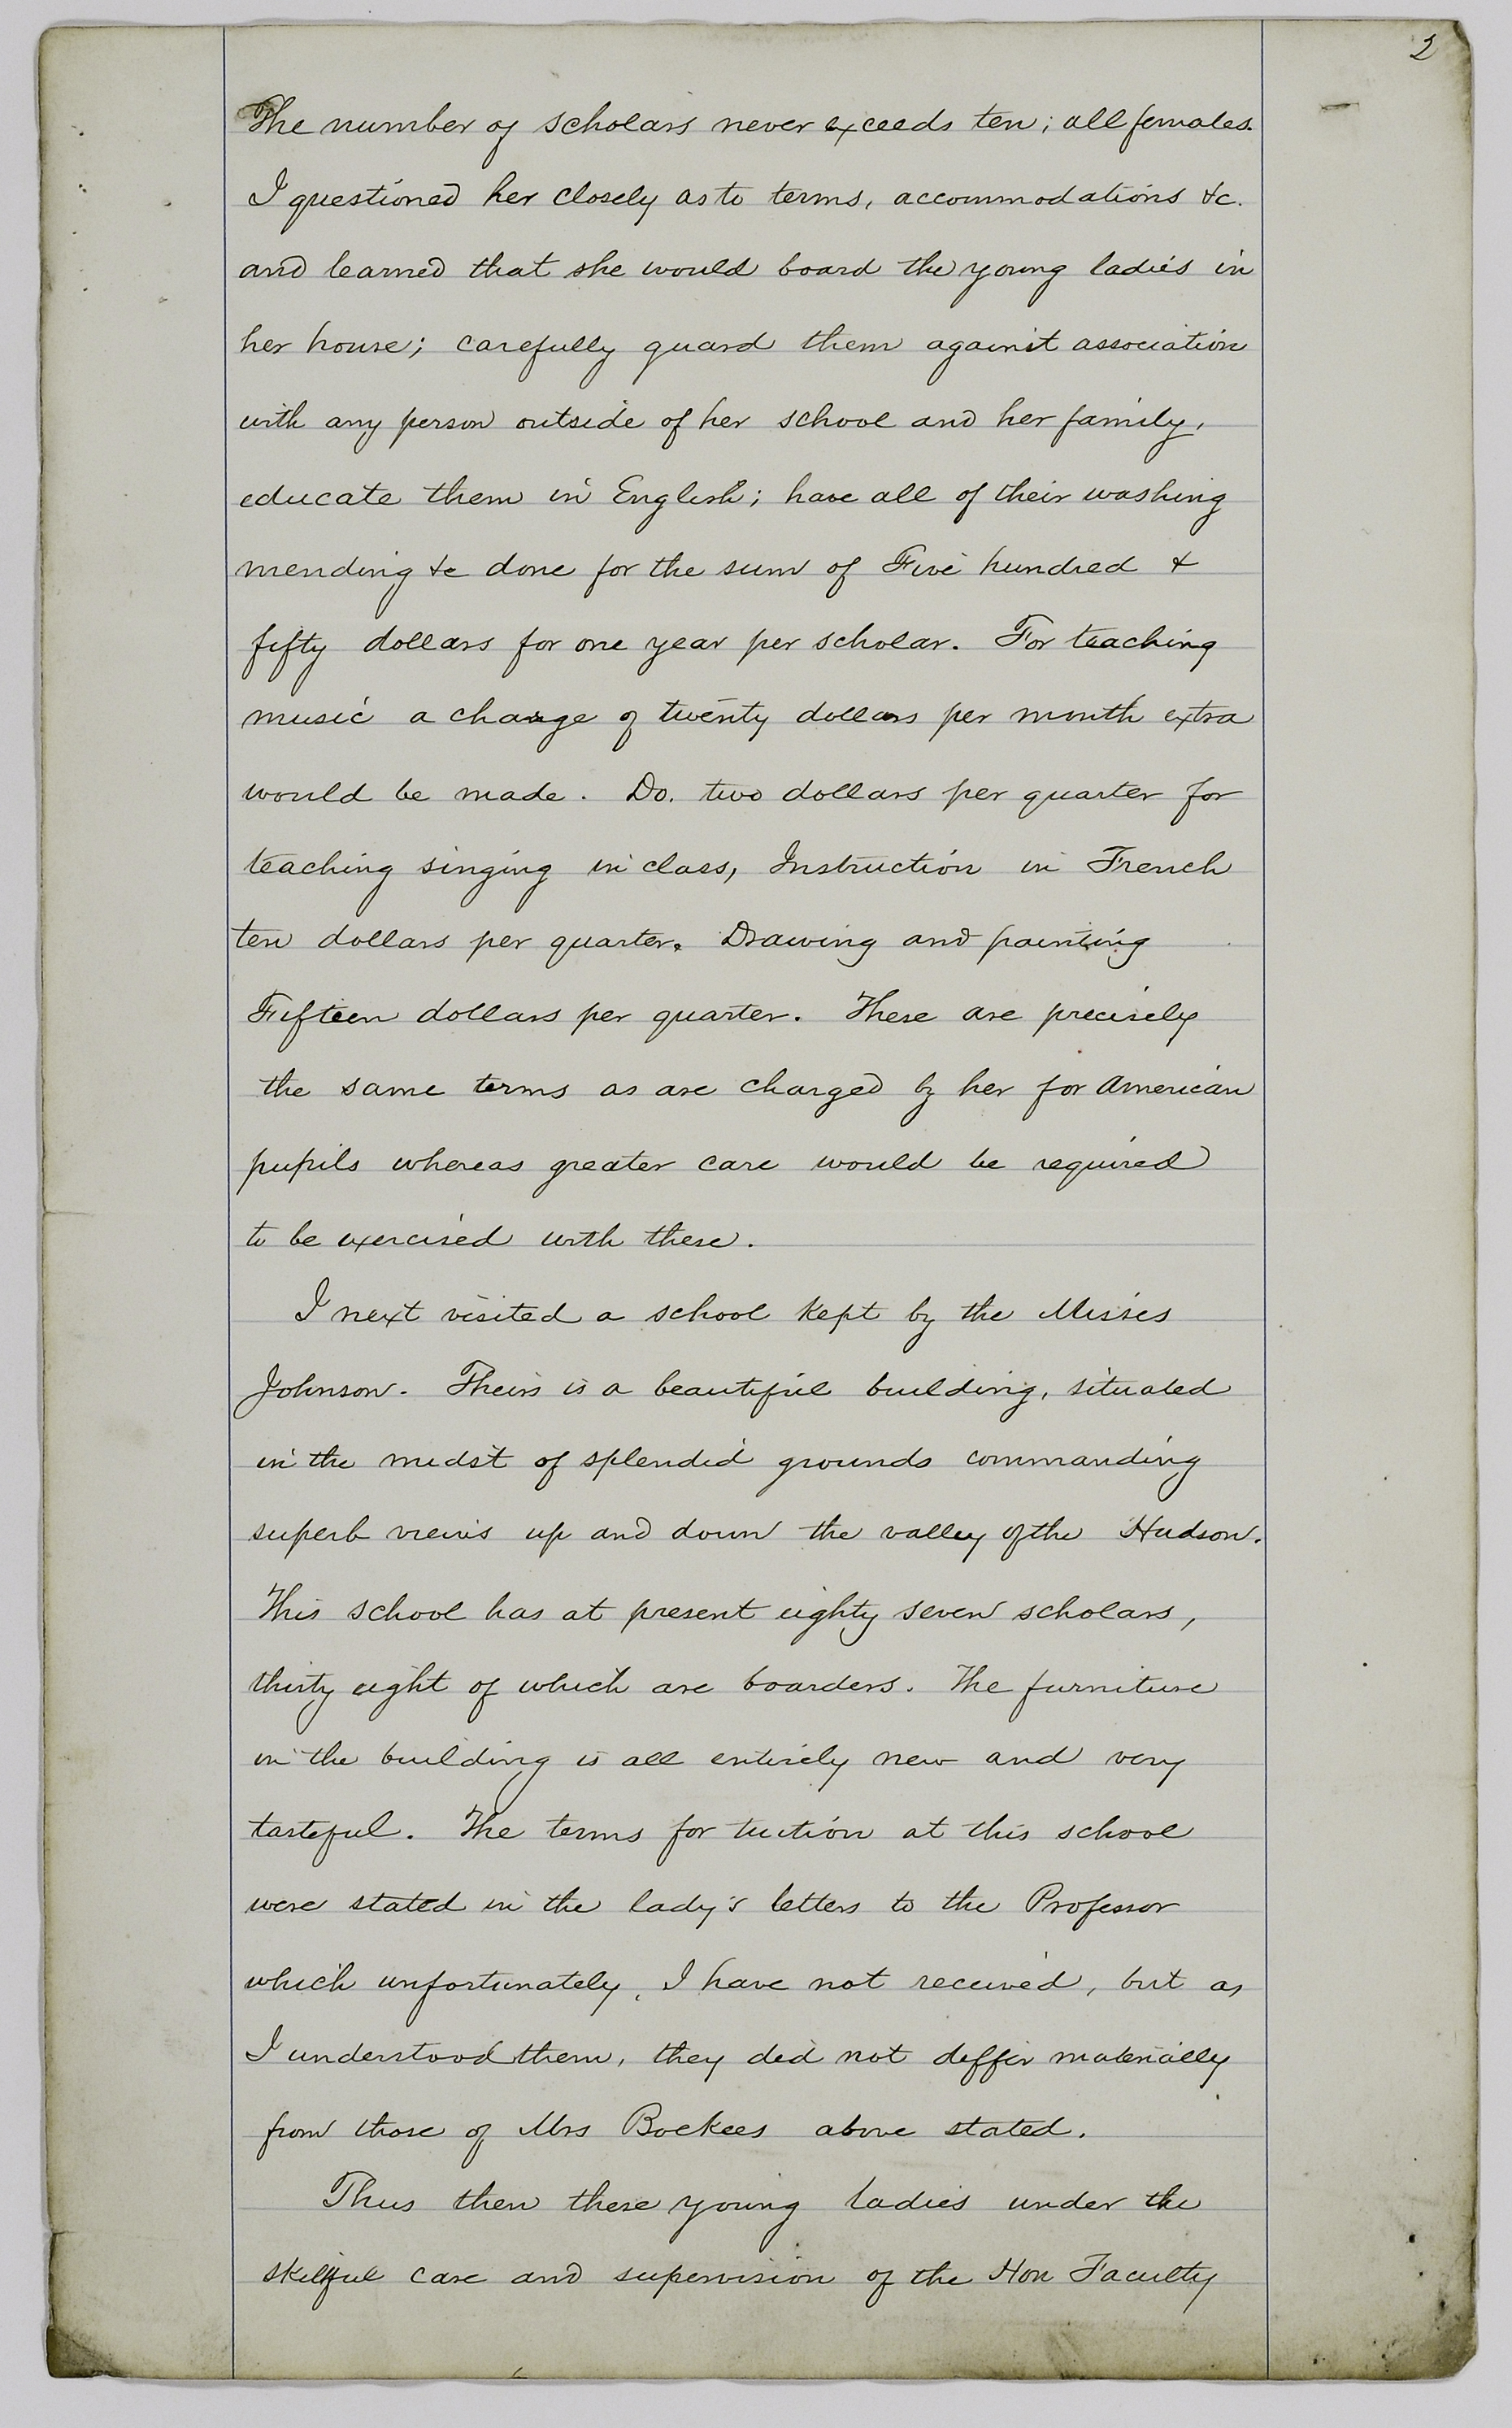 2
The number of scholars never exceeds ten; all females.
I questioned her closely as to terms, accommodations &c.
and learned that she would board the young ladies in
her house; carefully guard them against association
with any person outside of her school and her family,
educate them in English; have all of their washing
mending &c done for the sum of Five hundred &
fifty dollars for one year per scholar. For teaching
music a charge of twenty dollars per month extra
would be made. Do. two dollars per quarter for
teaching singing in class, Instruction in French
ten dollars per quarter. Drawing and painting
Fifteen dollars per quarter. These are precisely
the same terms as are charged by her for American
pupils whereas greater care would be required
to be exercised with these.
I next visited a school kept by the Misses
Johnson. Theirs is a beautiful building, situated
in the midst of splendid grounds commanding
superb views up and down the valley of the Hudson.
This school has at present eighty seven scholars,
thirty eight of which are boarders. The furniture
in the building is all entirely new and very
tasteful. The terms for tuition at this school
were stated in the lady's letters to the Professor
which unfortunately, I have not received, but as
I understood them, they did not differ materially
from those of Mrs Bockees above stated.
Thus then these young ladies under the
skillful care and supervision of the Hon Faculty